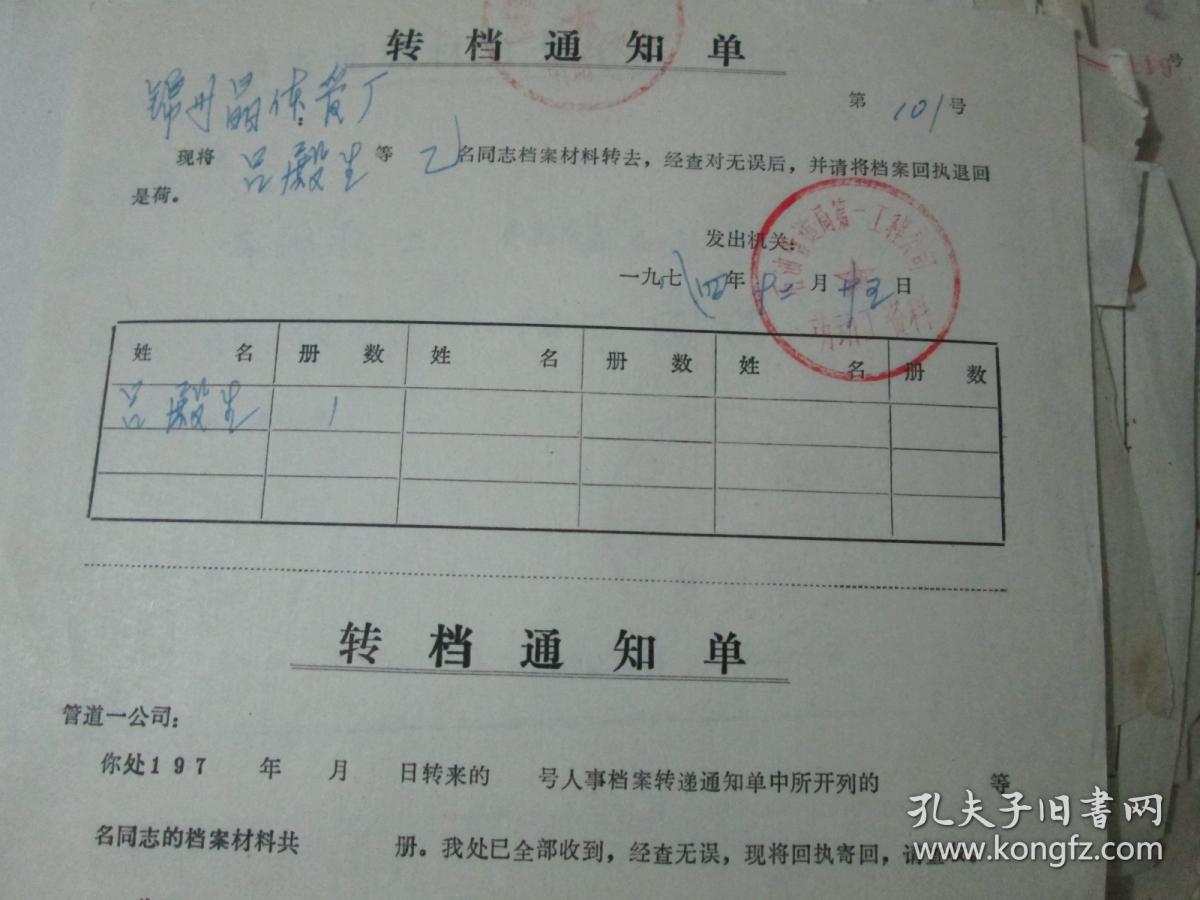 转档通知单
锦州晶体管厂
第101号
现将 吕殿生 等 乙 名同志档案材料转去，经查对无误后，并请将档案回执退回
是荷。
发出机关：
一九七四年十二月十五日
石油管道局第一工程公司
姓名 册数 姓名 册数 姓名 册数
吕殿生 1
转档通知单
管道一公司：
你处197 年 月 日转来的 号人事档案转递通知单中所开列的 等
名同志的档案材料共 册。我处已全部收到，经查无误，现将回执寄回，请查
孔夫子旧书网
www.kongfz.com